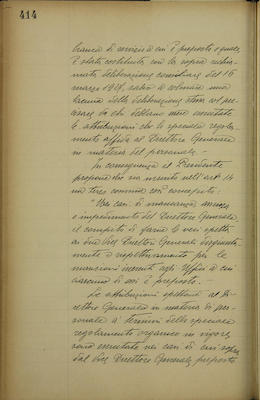 414
branca di servizio a cui è preposto e quale
è stata costituita con la sopra richia-
mata deliberazione consiliare del 16
marzo 1909, salvo a colmare una
lacuna della deliberazione stessa col pre-
cisare da chi debbano essere esercitate
le attribuzioni che lo speciale regola-
mento affida al Direttore Generale
in materia del personale. -
In conseguenza il Presidente
propone che sia inserito nell'art 14
un terzo comma così concepito:
"Nei casi di mancanza, assenza
o impedimento del Direttore Generale
il compito di farne le veci spetta
ai due Vice Direttori Generali disgiunta-
mente e rispettivamente per le
mansioni inerenti agli Uffici a cui
ciascuno di essi è preposto. -
Le attribuzioni spettanti al Di-
rettore Generale in materia di per-
sonale a termini dello speciale
regolamento organico in vigore,
sono esercitate nei casi di cui sopra
dal Vice Direttore Generale preposto